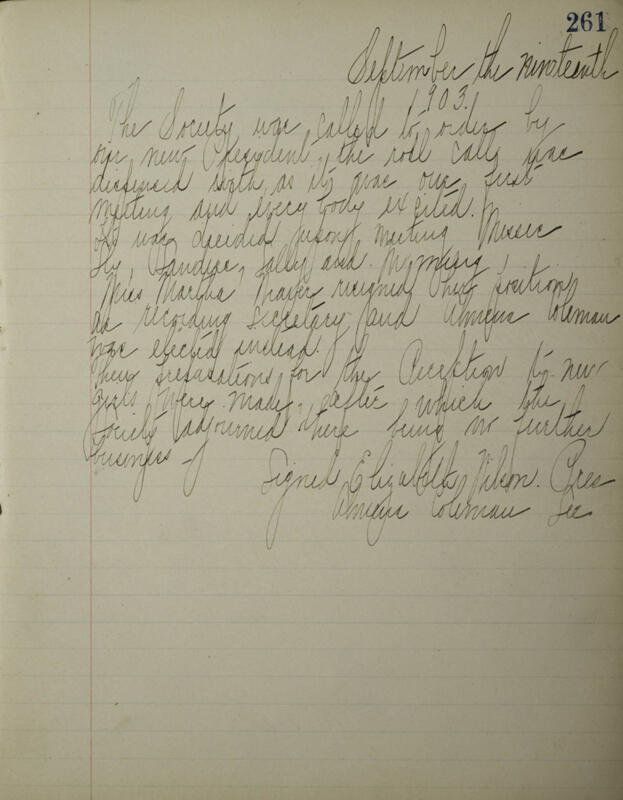 261
September the nineteenth
1903.
The Society was called to order by
our new President, the roll call was
dispensed with, as it was our first
meeting and every body excited.
It was decided upon meeting Misses
Sally and
Miss Martha resigned her position
as recording secretary and Coleman
was elected instead.
preparations for the Reception to new
girls were made, after which the
Society adjourned there being no further
business –
Signed Elizabeth Wilson. Pres
Coleman Sec